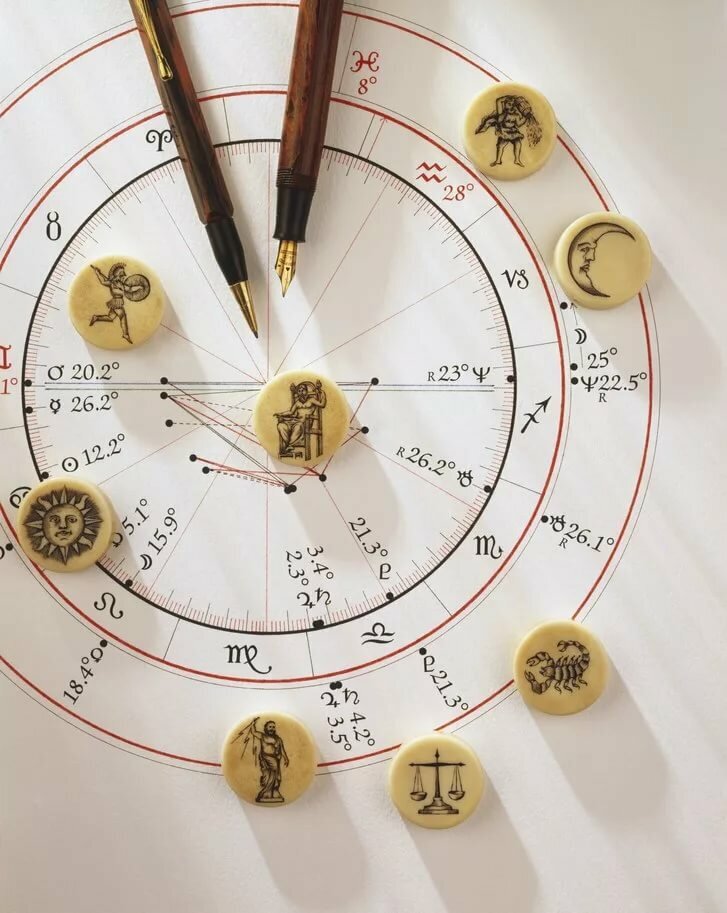 ♓
8°
♈
♒
28°
♉
♑
♊
1°
♂ 20.2°
R 23° ♆
☽
25°
☿ 26.2°
♆ 22.5°
R
♐
☉ 12.2°
R 26.2° ♅
5.1°
☽ 15.9°
21.3° ♇
♅ 26.1°
R
♏
3.4°
2.3°
♃ ♄
♌
♎
♍
18.4°
♇ 21.3°
♃ ♄
3.5° 4.2°